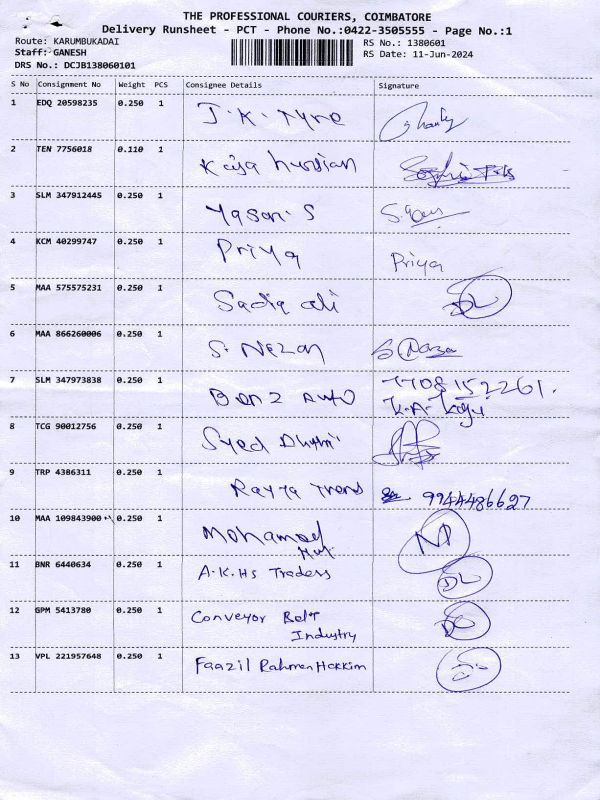 THE PROFESSIONAL COURIERS, COIMBATORE
Delivery Runsheet - PCT - Phone No.:0422-3505555 - Page No.:1
Route: KARUMBUKADAI RS No.: 1380601
Staff: GANESH RS Date: 11-Jun-2024
DRS No.: DCJB138060101
S No Consignment No Weight PCS Consignee Details Signature
1 EDQ 20598235 0.250 1 J.K. Tyre
2 TEN 7756018 0.110 1 Kaja
3 SLM 347912445 0.250 1 Yasar. S
4 KCM 40299747 0.250 1 Priya Priya
5 MAA 575575231 0.250 1 Sadiq ali DL
6 MAA 866260006 0.250 1 S.
7 SLM 347973838 0.250 1 Benz Auto 7708152261.
K.A.
8 TCG 90012756 0.250 1 Syed
9 TRP 4386311 0.250 1 9944486627
10 MAA 109843900 0.250 1 Mohamed
11 BNR 6440634 0.250 1 A.K.Hs Traders DL
12 GPM 5413780 0.250 1 Conveyor Belt
Industry
13 VPL 221957648 0.250 1 Faazil Rahman Hakkim